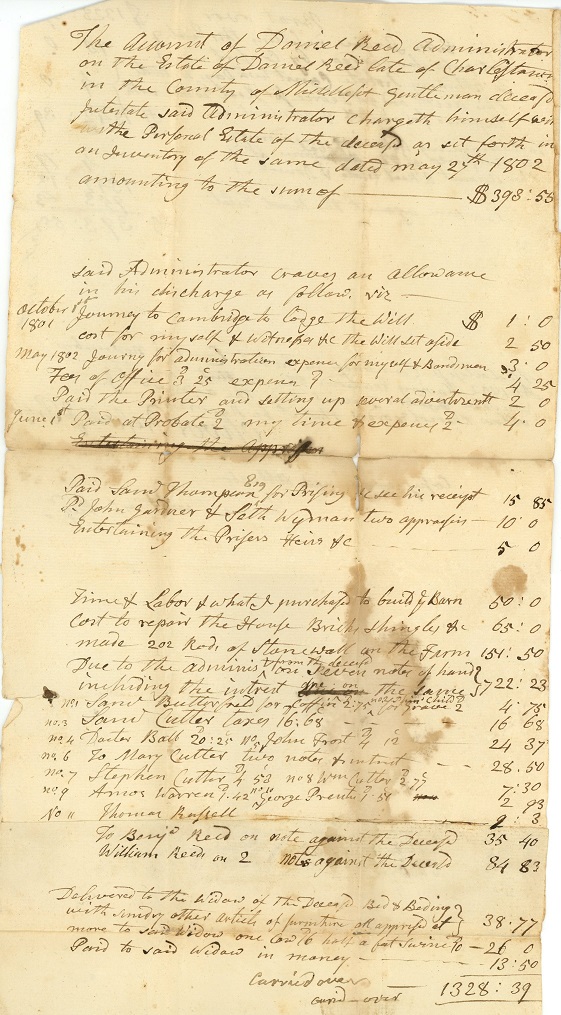 The Account of Daniel Reed Administrator
on the Estate of Daniel Reed late of Charlestown
in the County of Middlesex Gentleman deceasd
Intestate said Administrator Chargeth himself with
the Personal Estate of the deceasd as sit forth in
an Inventory of the same dated may 25th 1802
amounting to the sum of — $393:55
said Administrator craves an allowance
in his discharge as follow. viz —
October 1st 1801 Journey to Cambridge to lodge the Will $ 1:0
cost for my self & witnesses &c the Will set aside 2 50
May 1802 Journy for administration expence for my self & Bondsmen 3:0
Fees of office 3 25 expence 1 4 25
Paid the Printer and setting up several advertizments 2 0
June 1st Paid at Probate 2 my time & expence 2 4:0
Entertaining the Apprisers
Paid Saml Thompson Esq for Prising &c see his receipt 15 85
Pd John Gardner & Seth Wyman two apprasers — 10:0
Entertaining the Prisers Heirs &c 5 0
Time & Labor & what I purchased to build ye Barn 50:0
Cost to repair the House Bricks Shingles &c 65:0
made 202 Rods of Stonewall on the Farm 151:50
Due to the adminisr from the deceasd one seven notes of hand
including the intrest on the same 722:23
no 1 Saml Butterfield for Coffin 2:75 for grave 2 4:75
no. 3 Saml Cutter taxes 16:68 16 68
no. 4 Docter Ball 20:25 no. 5 John Frost 4 12 24 37
no. 6 To Mary Cutter two notes & intrest 28.50
no. 7 Stephen Cutter 4 53 no 8 Wm Cutter 2.77 7:30
no. 9 Amos Warren 1.42 no 10 George Prentis 1.51 2 93
No 11 Thomas Russell 2:3
To Benja Reed on note against the Deceasd 35 40
William Reeds on 2 notes against the Deceasd 84 83
Delivered to the Widow of the Deceasd Bed & Beding
with sundry other Articls of furniture all apprised at 38.77
more to said widow one Cow 16 half a fat Swine 10 — 26 0
Paid to said Widow in money — 13:50
Carried over 1328:39
carrid over